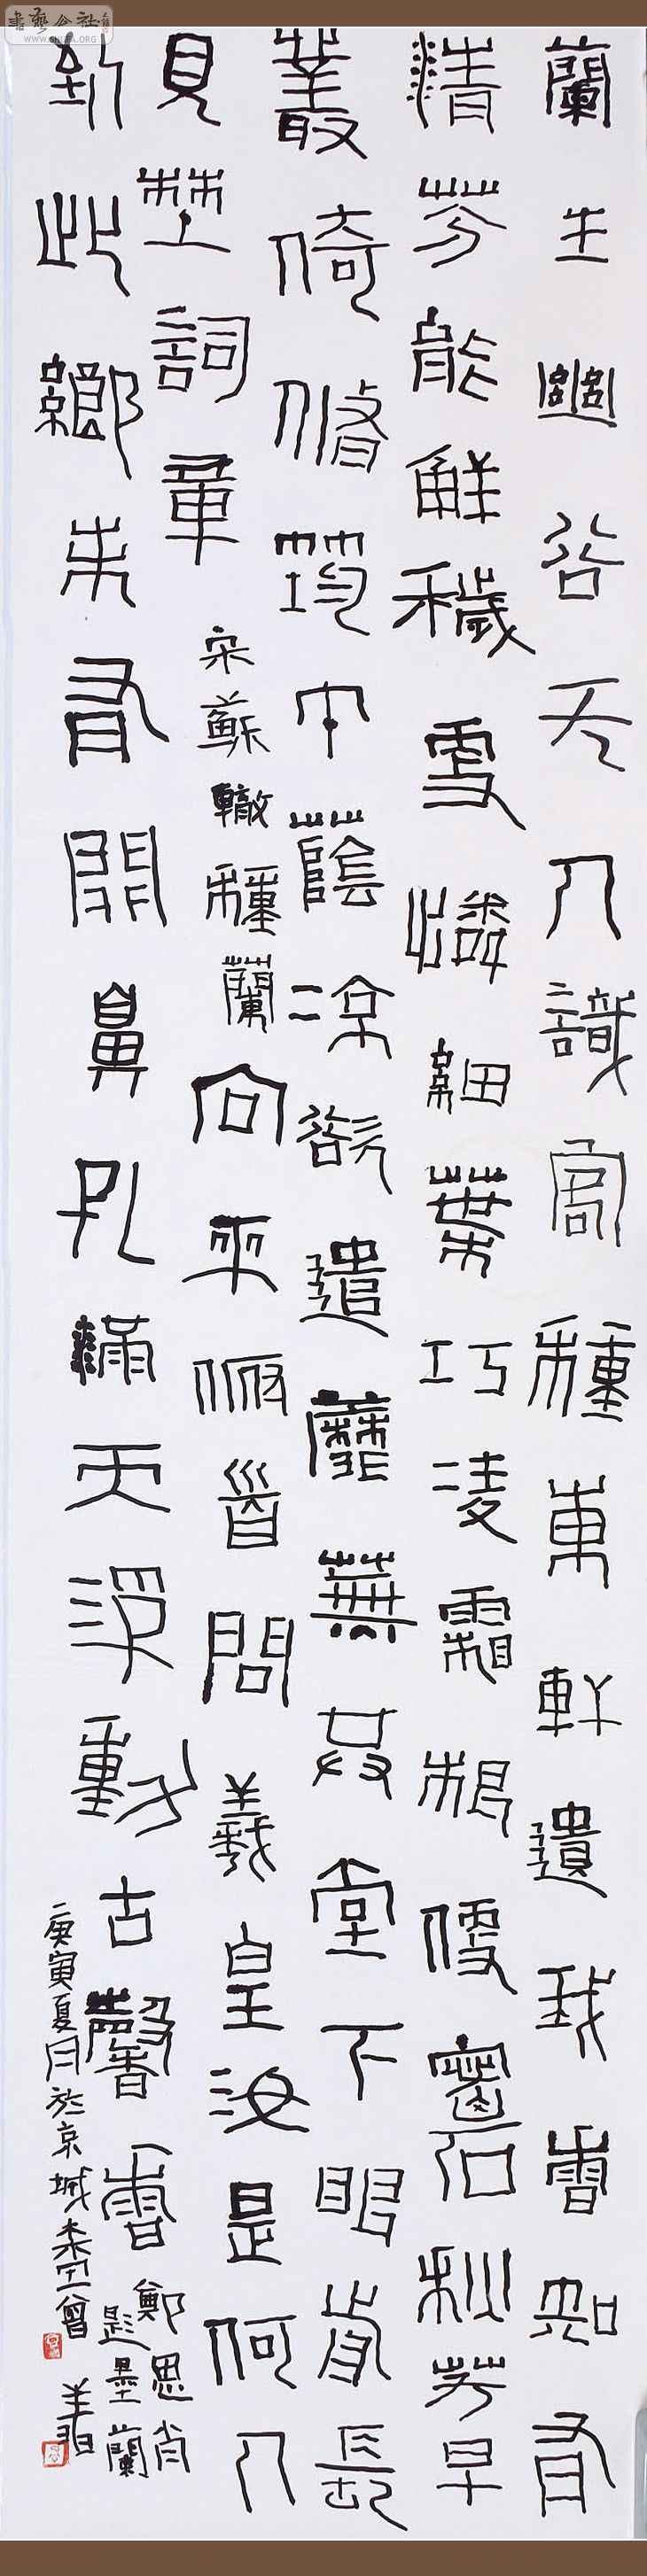 書藝公社
WWW.SHUFA.ORG
蘭生幽谷无人識客種東軒遺我香知有
清芬能解穢更憐細葉巧凌霜根便密石秋芳早
叢倚脩筠午蔭涼欲遣蘼蕪共堂下眼前長
見楚詞章
宋蘇轍種蘭
向來俯首問羲皇汝是何人
到此鄉未有開鼻孔滿天浮動古馨香
鄭思肖
題墨蘭
庚寅夏月於京城 曾